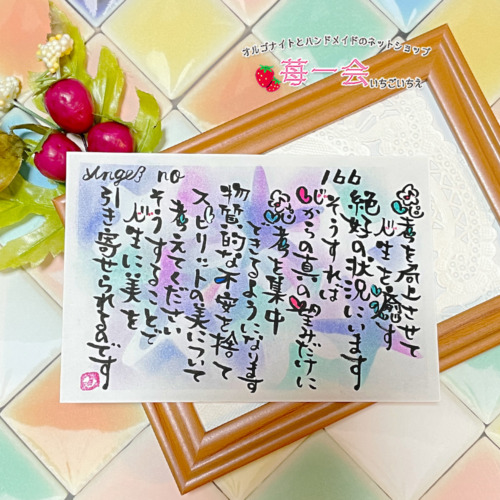 オルゴナイトとハンドメイドのネットショップ
苺一会
いちごいちえ
Angel no 166
思考を向上させて
人生を癒す
絶好の状況にいます
そうすれば
心からの真の望みだけに
思考を集中
できるようになります
物質的な不安を捨て
スピリットの美について
考えてください
そうすることで
人生に美を
引き寄せられるのです